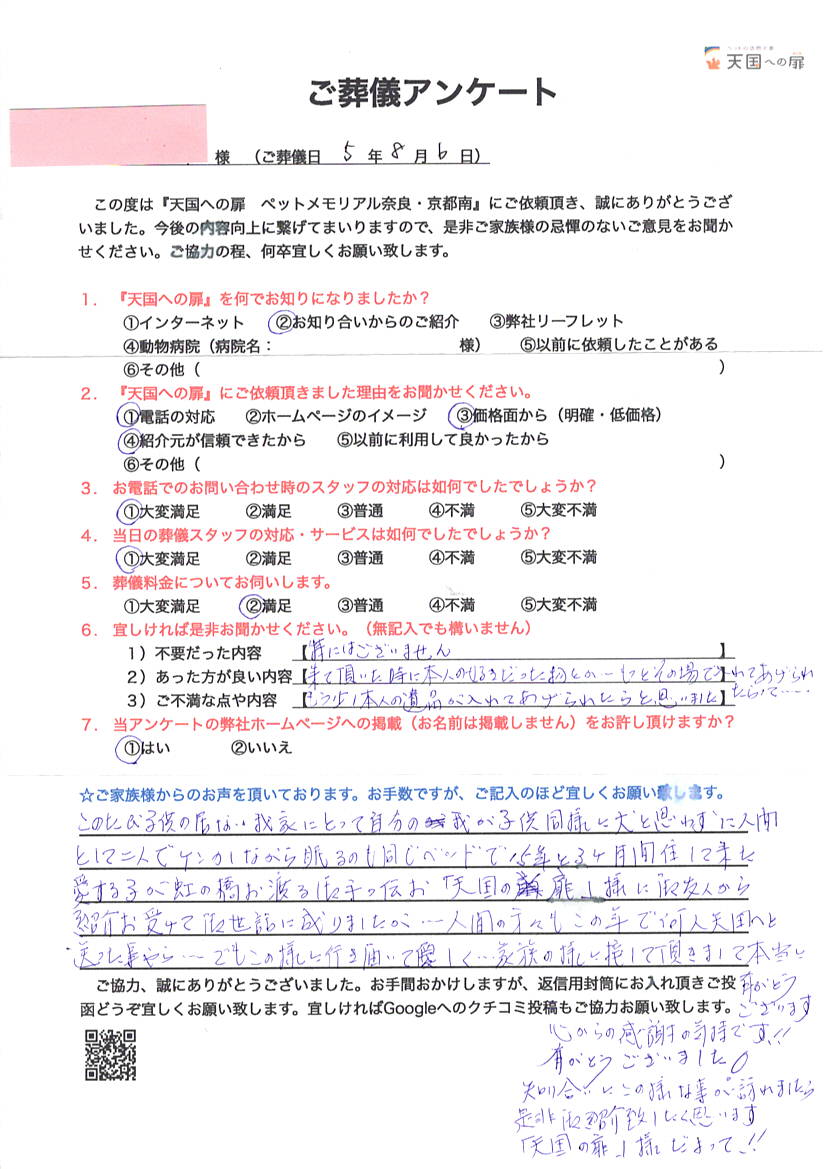 ペットのお葬式屋
天国への扉
ご葬儀アンケート
様 （ご葬儀日 5 年 8 月 6 日）
この度は『天国への扉 ペットメモリアル奈良・京都南』にご依頼頂き、誠にありがとうござ
いました。今後の内容向上に繋げてまいりますので、是非ご家族様の忌憚のないご意見をお聞か
せください。ご協力の程、何卒宜しくお願い致します。
1. 『天国への扉』を何でお知りになりましたか？
①インターネット ②お知り合いからのご紹介 ③弊社リーフレット
④動物病院（病院名： 様） ⑤以前に依頼したことがある
⑥その他（ ）
2. 『天国への扉』にご依頼頂きました理由をお聞かせください。
①電話の対応 ②ホームページのイメージ ③価格面から（明確・低価格）
④紹介元が信頼できたから ⑤以前に利用して良かったから
⑥その他（ ）
3. お電話でのお問い合わせ時のスタッフの対応は如何でしたでしょうか？
①大変満足 ②満足 ③普通 ④不満 ⑤大変不満
4. 当日の葬儀スタッフの対応・サービスは如何でしたでしょうか？
①大変満足 ②満足 ③普通 ④不満 ⑤大変不満
5. 葬儀料金についてお伺いします。
①大変満足 ②満足 ③普通 ④不満 ⑤大変不満
6. 宜しければ是非お聞かせください。（無記入でも構いません）
1）不要だった内容 【特にはございません 】
2）あった方が良い内容【来て頂いた時に本人の好きだった物とか…もっとその場で入れてあげられ
たらって……
3）ご不満な点や内容 【もう少し本人の遺品が入れてあげられたらと思いました】
7. 当アンケートの弊社ホームページへの掲載（お名前は掲載しません）をお許し頂けますか？
①はい ②いいえ
☆ご家族様からのお声を頂いております。お手数ですが、ご記入のほど宜しくお願い致します。
このたび子供の居ない我家にとって自分の我が子供同様に犬と思わずに人間
として二人でケンカしながら眠るのも同じベッドで15年と3ヶ月間住して来た
愛する子が虹の橋お渡る御手つ伝お「天国の扉」様に御友人から
紹介お受けて御世話に成りましたが…人間の方々もこの年で何人天国へと
送った事やら…でもこの様に行き届いて優しく…家族の様に接して頂きまして本当に
有がとう
ございます
ご協力、誠にありがとうございました。お手間おかけしますが、返信用封筒にお入れ頂きご投
函どうぞ宜しくお願い致します。宜しければGoogleへのクチコミ投稿もご協力お願い致します。
心からの感謝の気持です!!
有がとうございました。
知り合いにこの様な事が訪れましたら
是非御紹介致したく思います
「天国の扉」様だよって!!